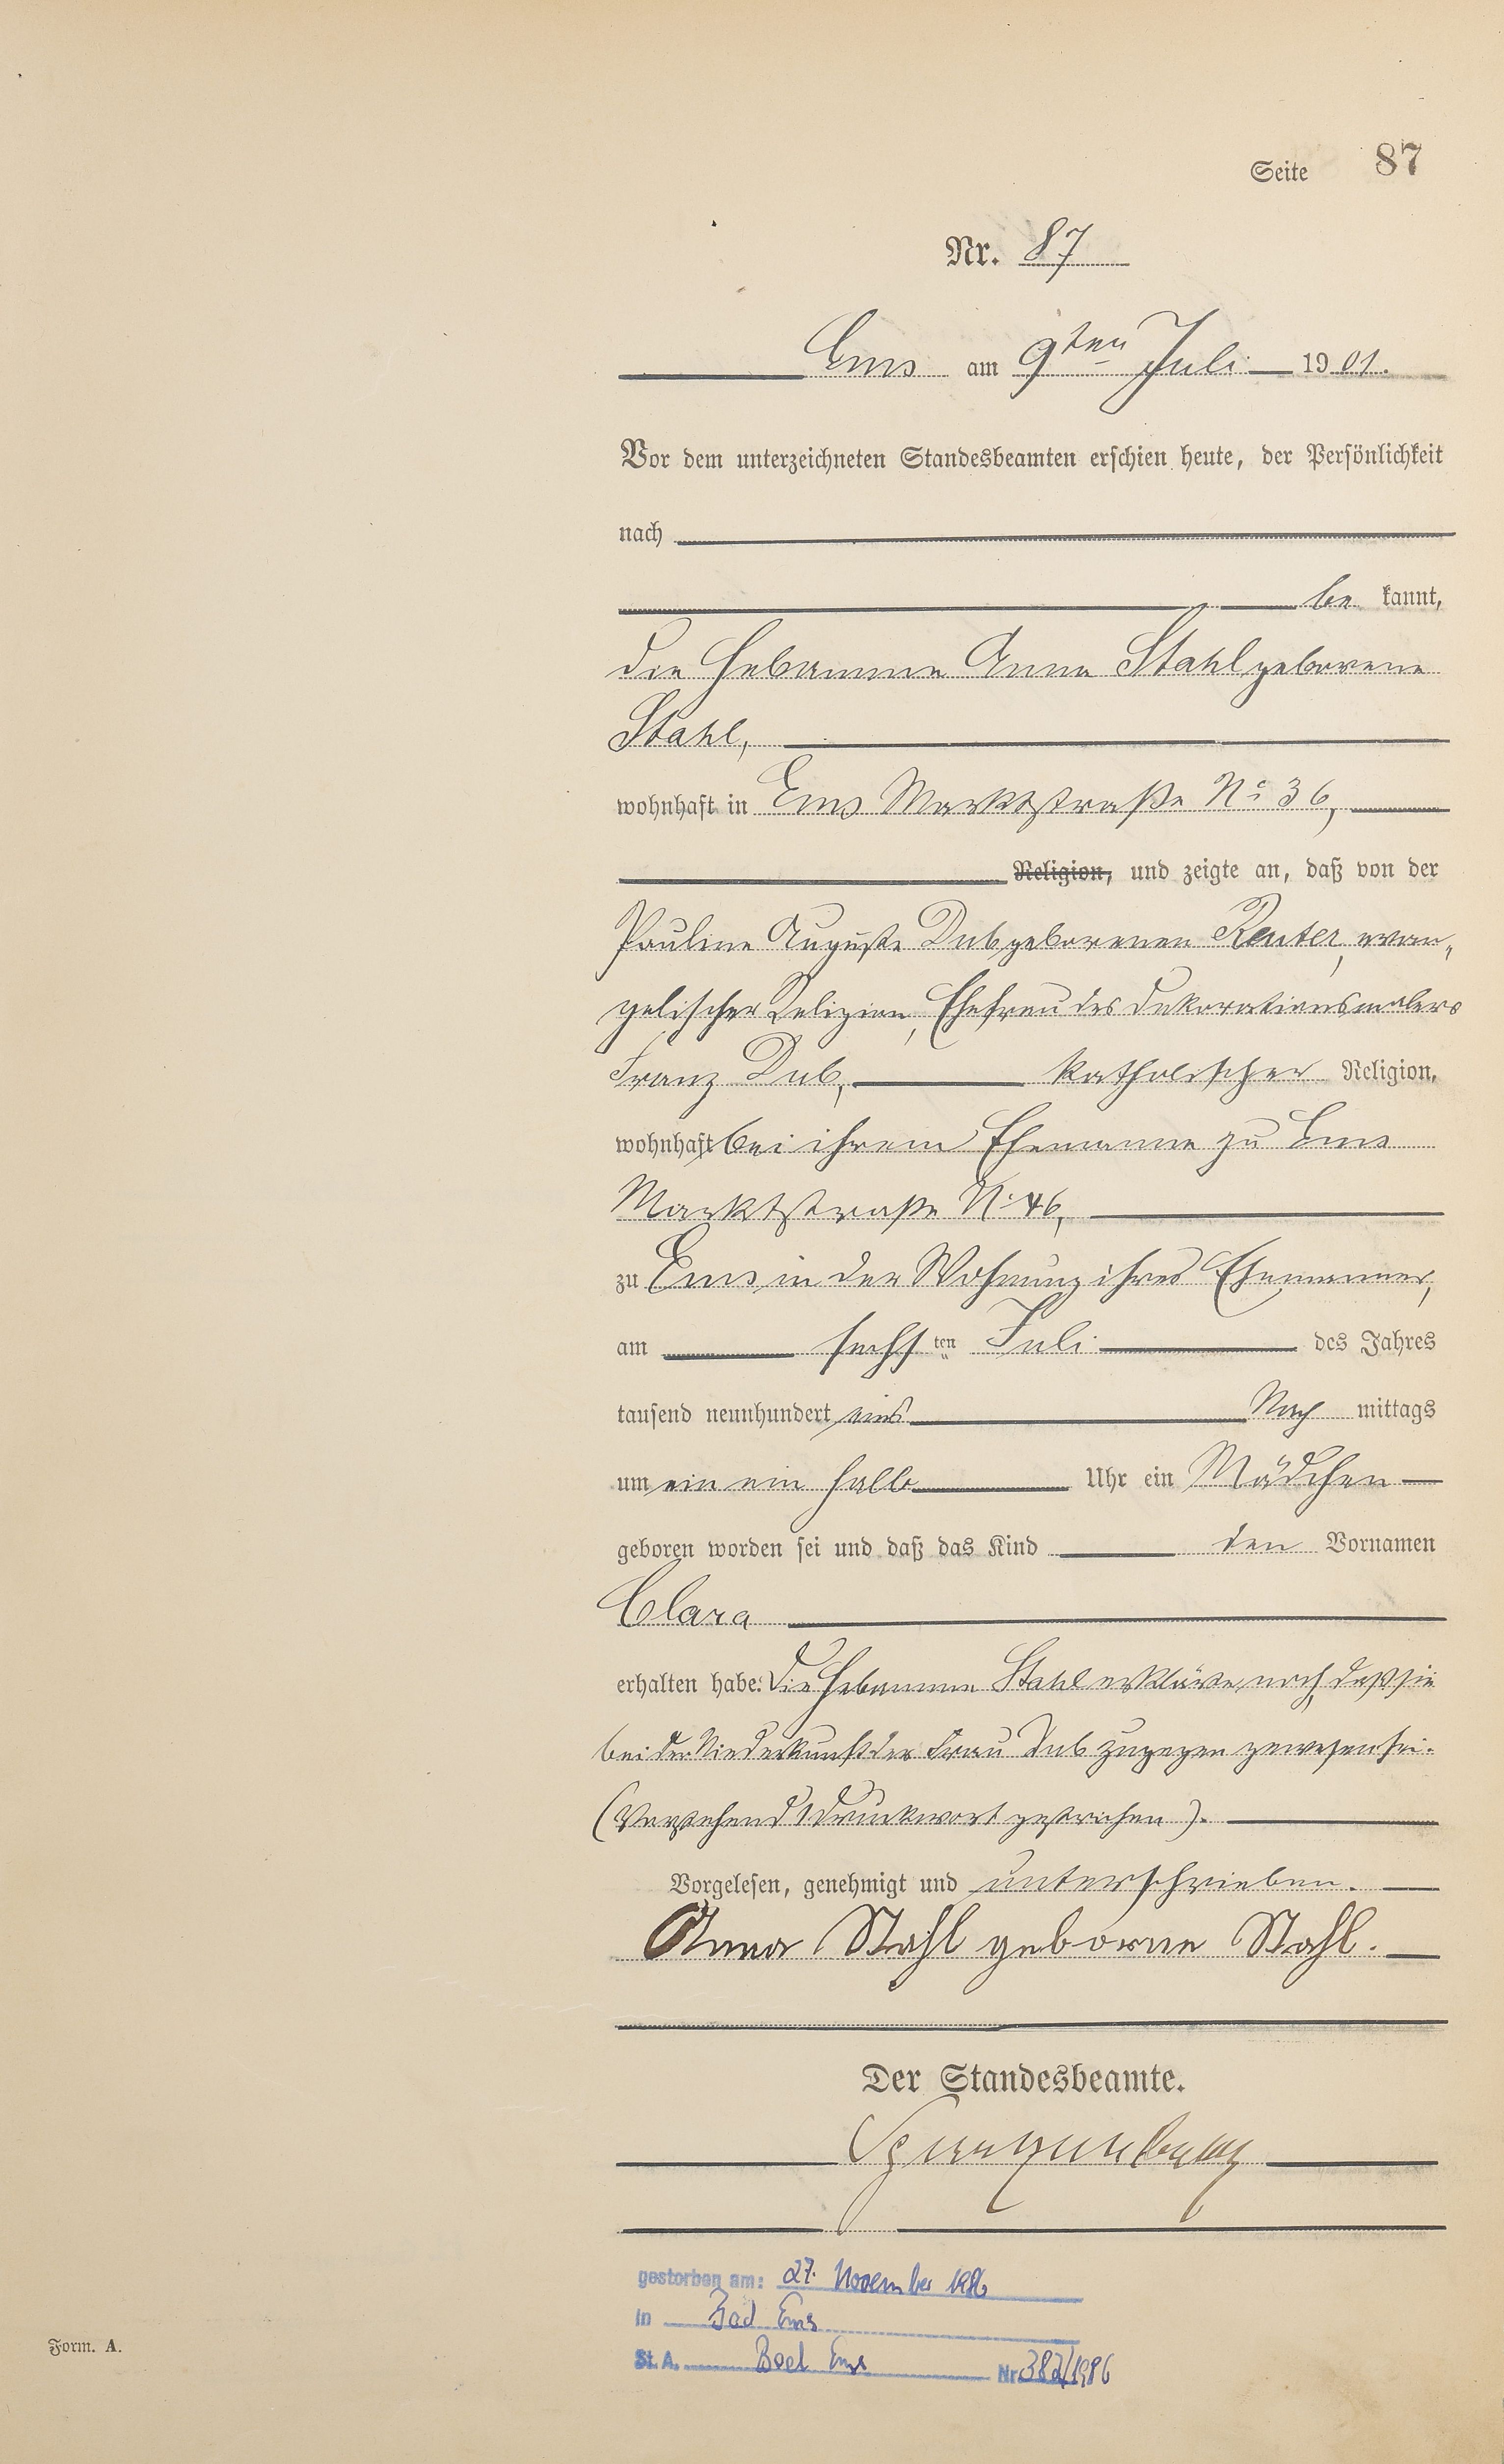 Seite 87
Nr. 87
Ems am 9ten Juli 1901.
Vor dem unterzeichneten Standesbeamten erschien heute, der Persönlichkeit
nach
be kannt,
die Hebamme Anna Stahl geborene
Stahl,
wohnhaft in Ems Marktstraße No 36,
Religion, und zeigte an, daß von der
Pauline Auguste Dub geborenen Reuter, evan-
gelischer Religion, Ehefrau des Dekorationsmalers
Franz Dub, katholischer Religion,
wohnhaft bei ihrem Ehemanne zu Ems
Marktstraße No 46,
zu Ems in der Wohnung ihres Ehemannes,
am sechsten Juli des Jahres
tausend neunhundert eins Nach mittags
um ein ein halb Uhr ein Mädchen
geboren worden sei und daß das Kind den Vornamen
Clara
erhalten habe. Die Hebamme Stahl erklärte noch, daß sie
bei der Niederkunft der Frau Dub zugegen gewesen sei.
(Vorstehend 1 Druckwort gestrichen).
Vorgelesen, genehmigt und unterschrieben.
Anna Stahl geborne Stahl.
Der Standesbeamte.
gestorben am: 27. November 1986
in Bad Ems
St. A. Bad Ems Nr. 382/1986
Form. A.